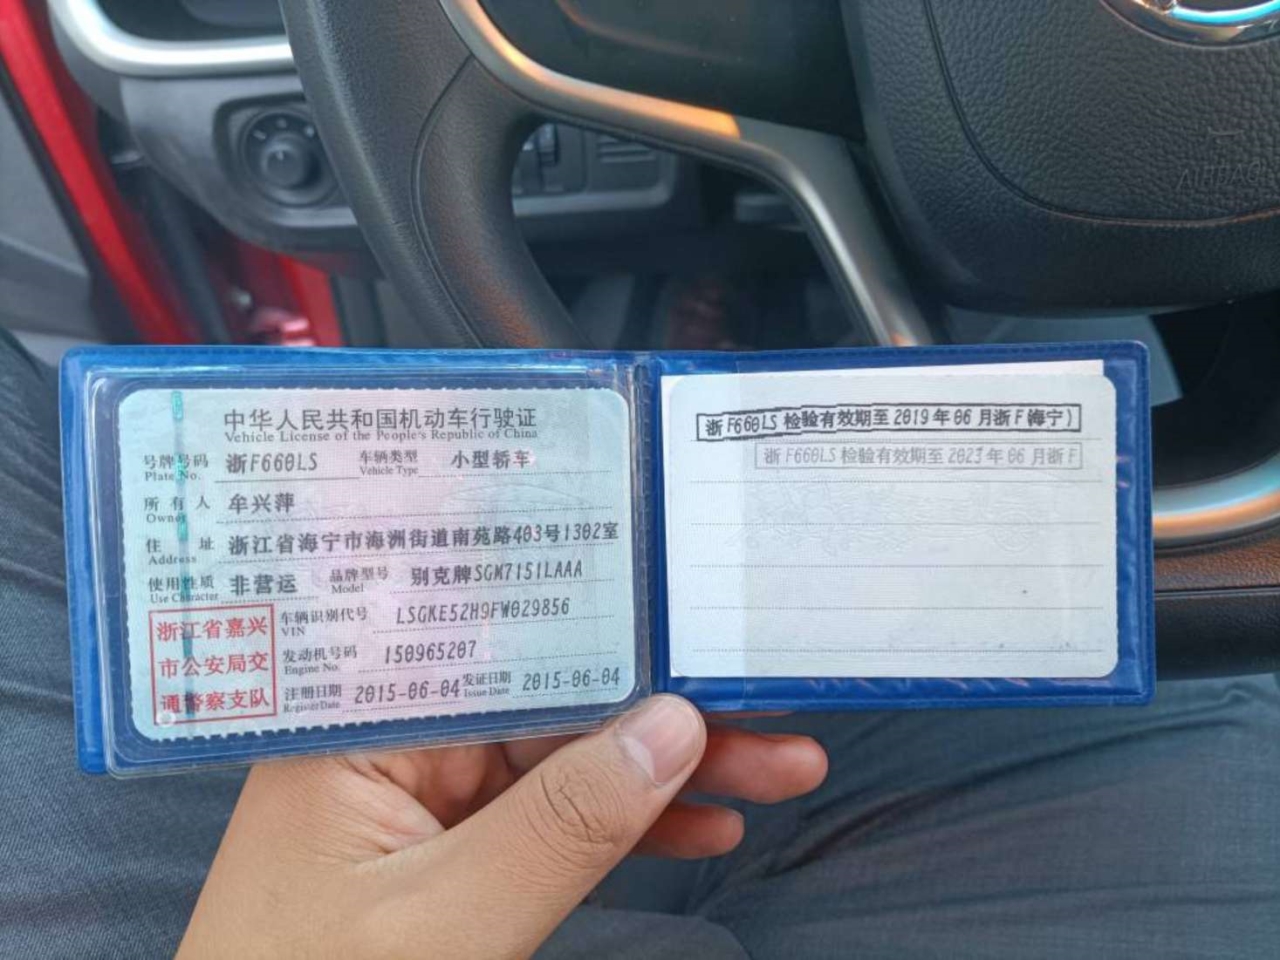 中华人民共和国机动车行驶证
Vehicle License of the People's Republic of China
号牌号码 浙F660LS 车辆类型 小型轿车
Plate No. Vehicle Type
所有人 牟兴萍
Owner
住址 浙江省海宁市海洲街道南苑路403号1302室
Address
使用性质 非营运 品牌型号 别克牌SGM7151LAAA
Use Character Model
浙江省嘉兴
市公安局交
通警察支队
车辆识别代号 LSGKE52H9FW029856
VIN
发动机号码 150965207
Engine No.
注册日期 2015-06-04 发证日期 2015-06-04
Register Date Issue Date
浙F660LS检验有效期至2019年06月浙F(海宁)
浙F660LS检验有效期至2023年06月浙F
AIRBAG